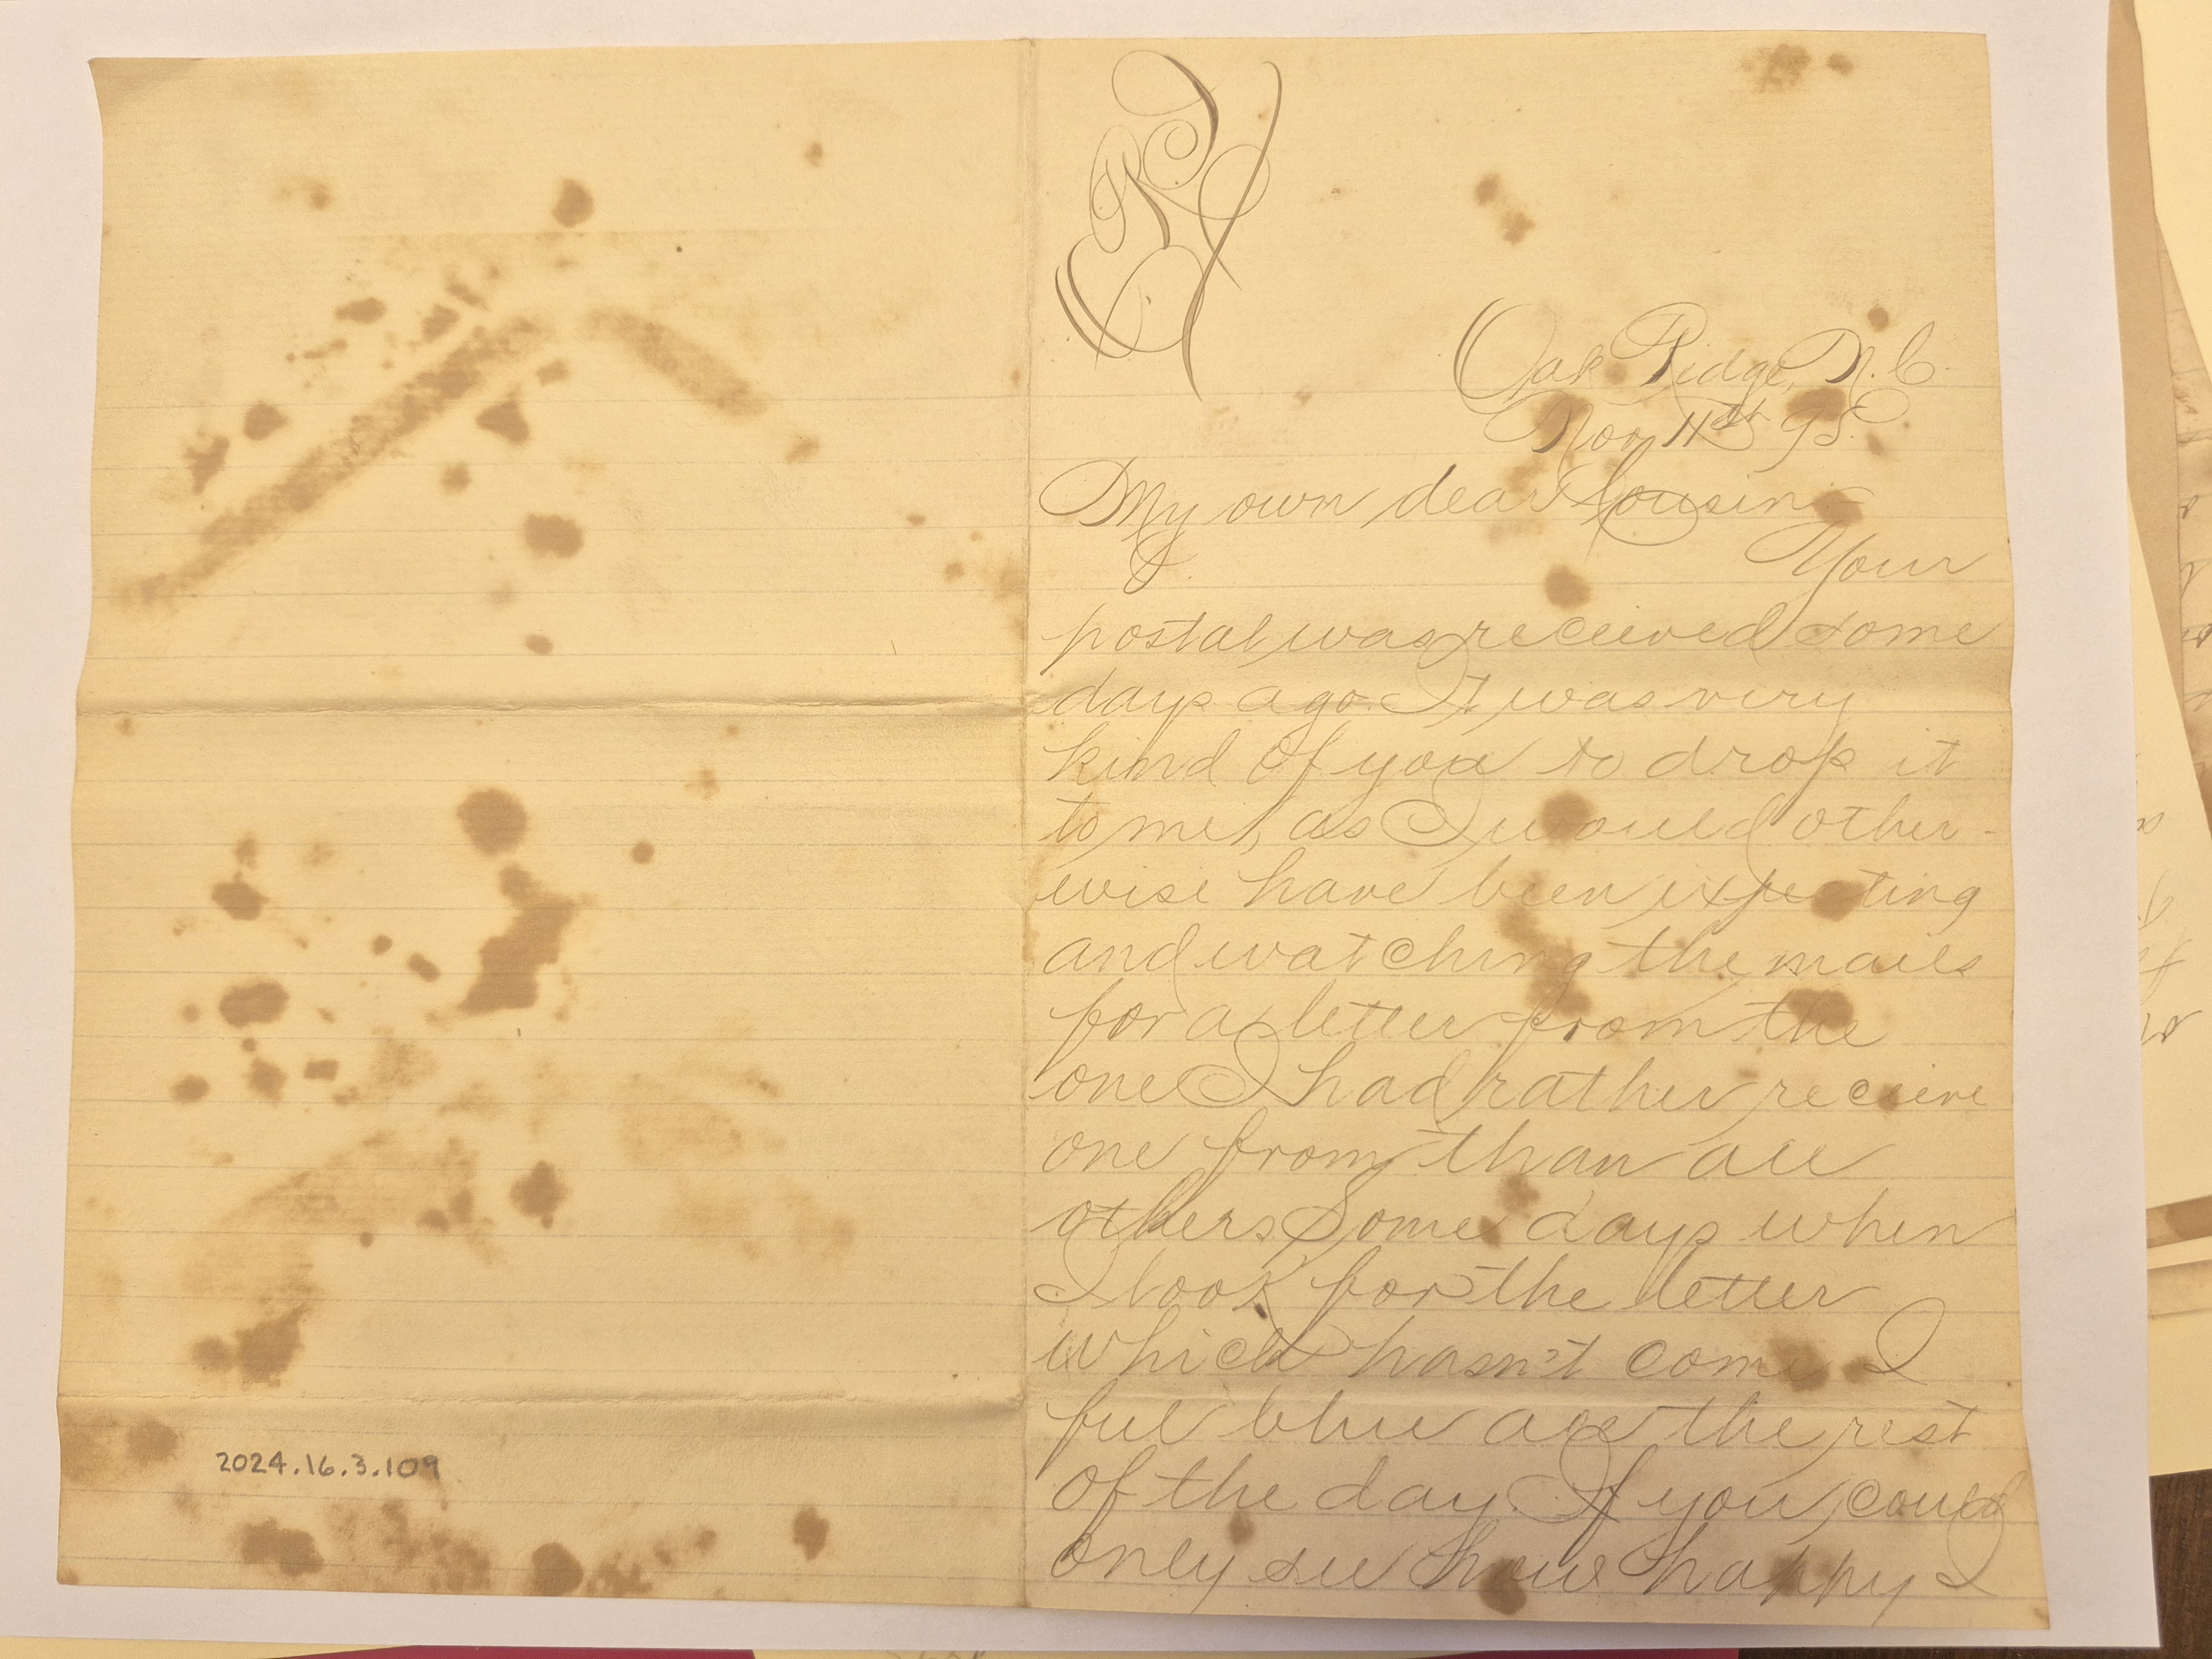 Oak Ridge, N.C.
Nov 11th 95.
My own dear Cousin,
Your
postal was received some
days ago. It was very
kind of you to drop it
to me, as I would other-
wise have been expecting
and watching the mails
for a letter from the
one I had rather recieve
one from than all
others Some days when
I look for the letter
which hasn't come I
ful blue all the rest
of the day. If you could
only see how happy I
2024.16.3.109